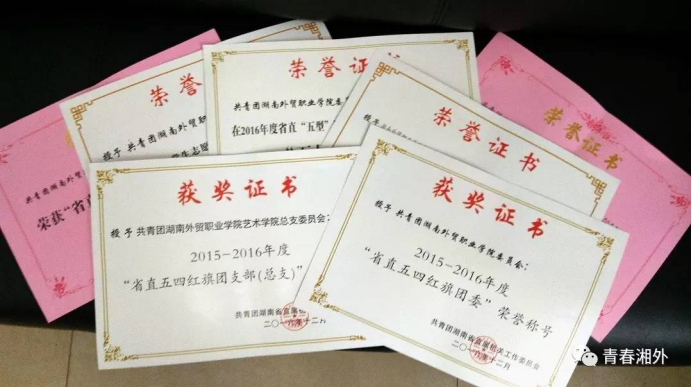 荣誉证书
共青团湖南外贸职业学院
荣誉证书
共青团湖南外贸职业学院委
在2016年度省直“五型”
荣誉证书
授予
荣誉证书
授予 共青团湖南外
荣获“省直
获奖证书
授予 共青团湖南外贸职业学院艺术学院总支委员会：
2015-2016年度
“省直五四红旗团支部(总支)”
共青团湖南省直属机
二〇一六年十二月
获奖证书
授予 共青团湖南外贸职业学院委员会：
2015-2016年度
“省直五四红旗团委”荣誉称号
共青团湖南省直属机关工作委员会
二〇一六年十二月
青春湘外